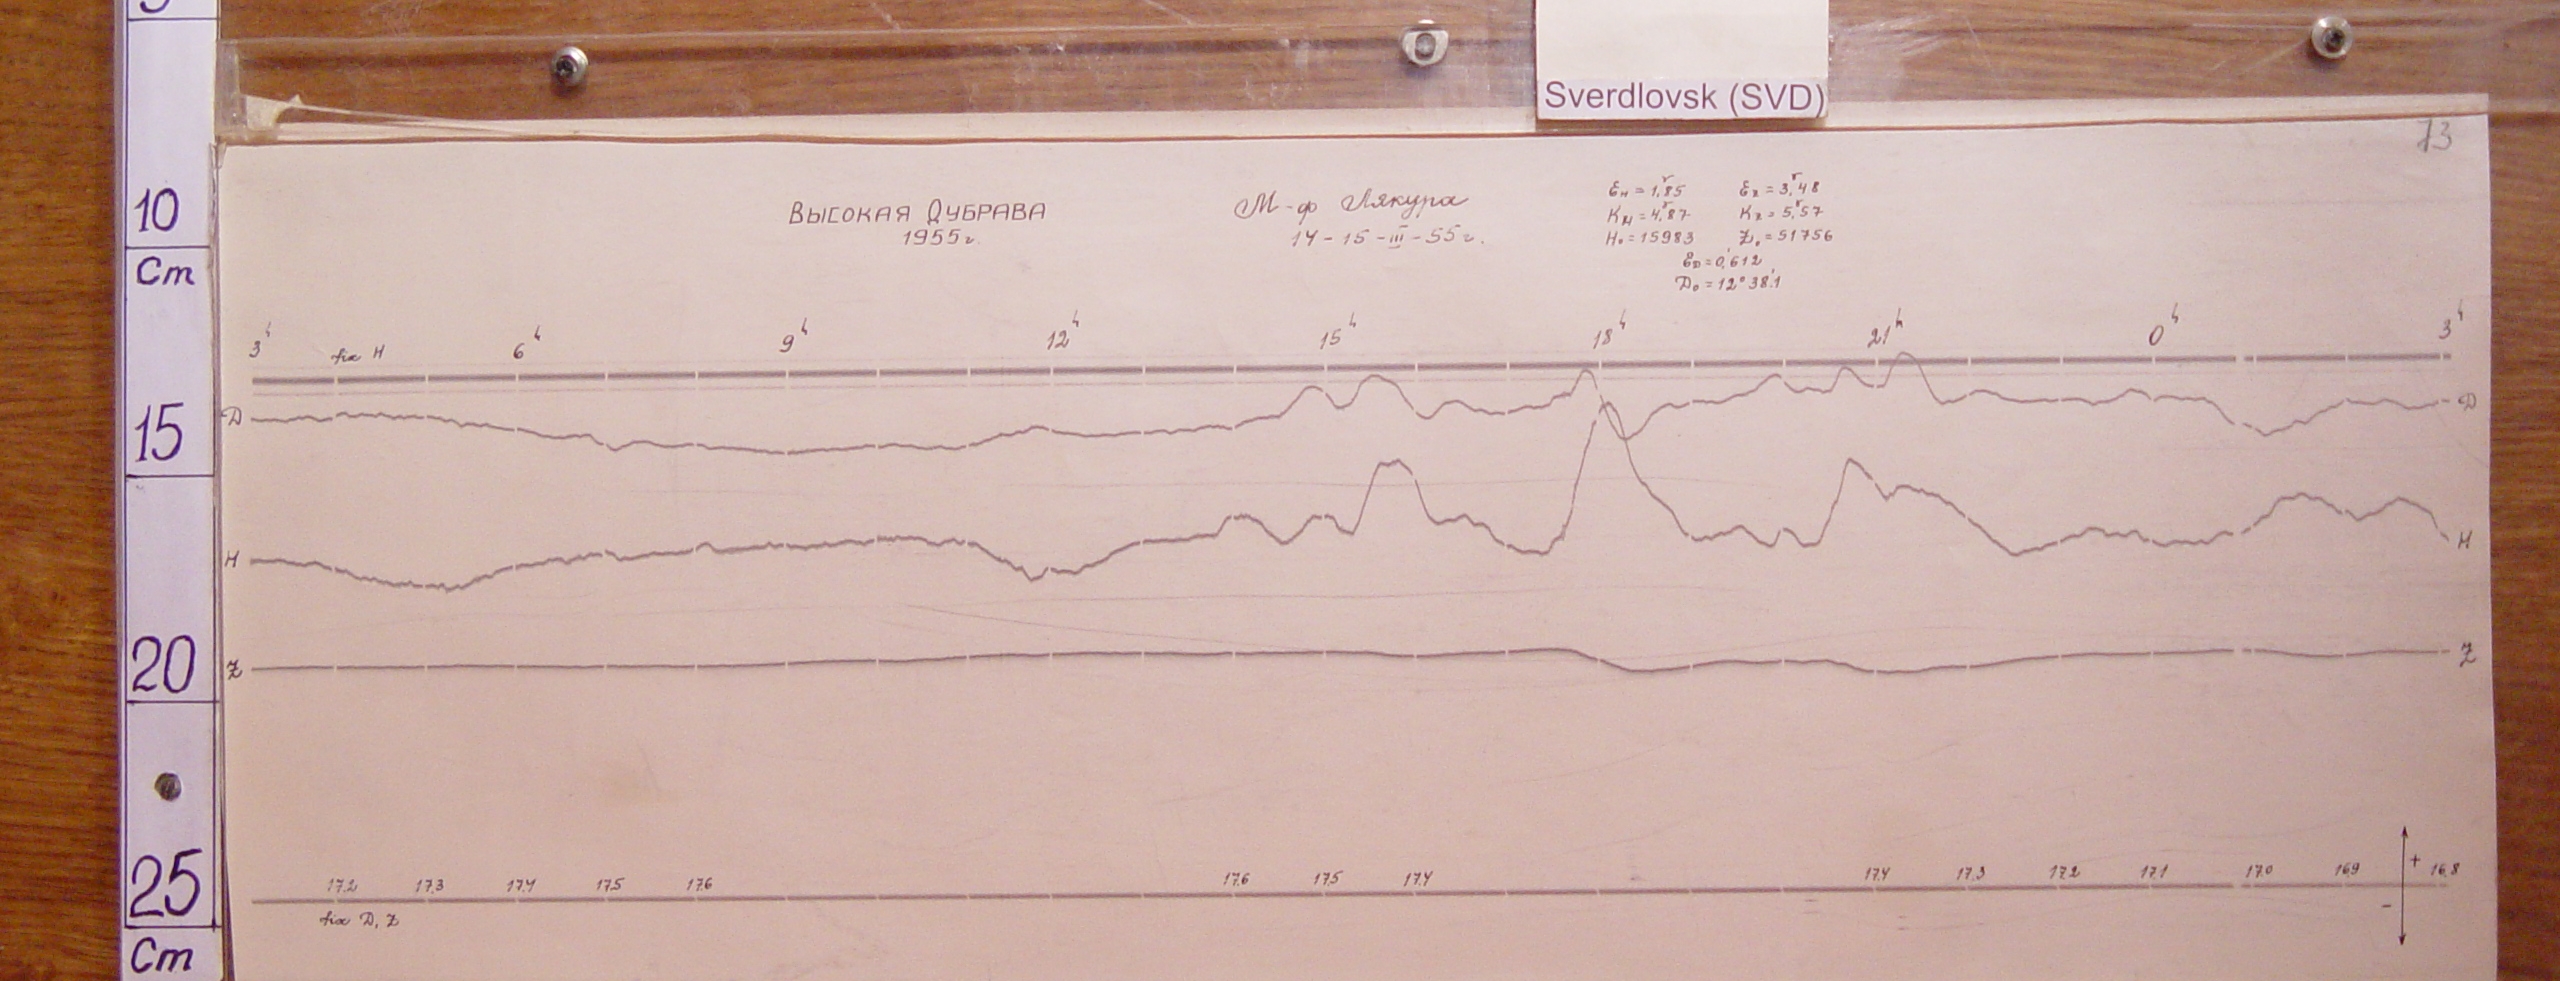 Sverdlovsk (SVD)
73
10
Cm
15
20
25
Cm
ВЫСОКАЯ ДУБРАВА
1955г.
М-ф Лякура
14-15-III-55г.
εH = 1,γ85 εZ = 3,γ48
KH = 4,γ87 KZ = 5,γ57
H₀ = 15983 Z₀ = 51756
εD = 0,′612
D₀ = 12°38,′1
3h 6h 9h 12h 15h 18h 21h 0h 3h
fix H
D D
H H
Z Z
17.2 17.3 17.4 17.5 17.6 17.6 17.5 17.4 17.4 17.3 17.2 17.1 17.0 16.9 16.8
+
−
fix D, Z